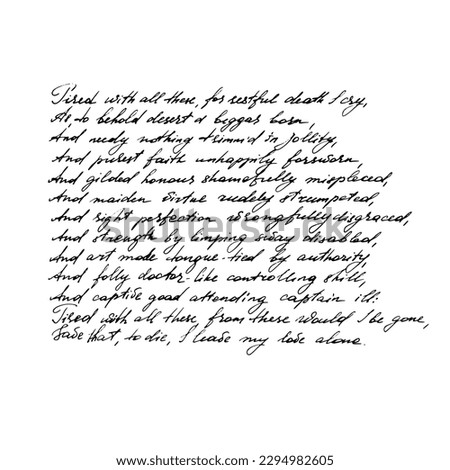 Tired with all these, for restful death I cry,
As, to behold desert a beggar born,
And needy nothing trimm'd in jollity,
And purest faith unhappily forsworn,
And gilded honour shamefully misplaced,
And maiden virtue rudely strumpeted,
And right perfection wrongfully disgraced,
shutterstock
And strength by limping sway disabled,
And art made tongue-tied by authority,
And folly doctor-like controlling skill,
And captive good attending captain ill:
Tired with all these from these would I be gone,
Save that, to die, I leave my love alone.
shutterstock.com · 2294982605